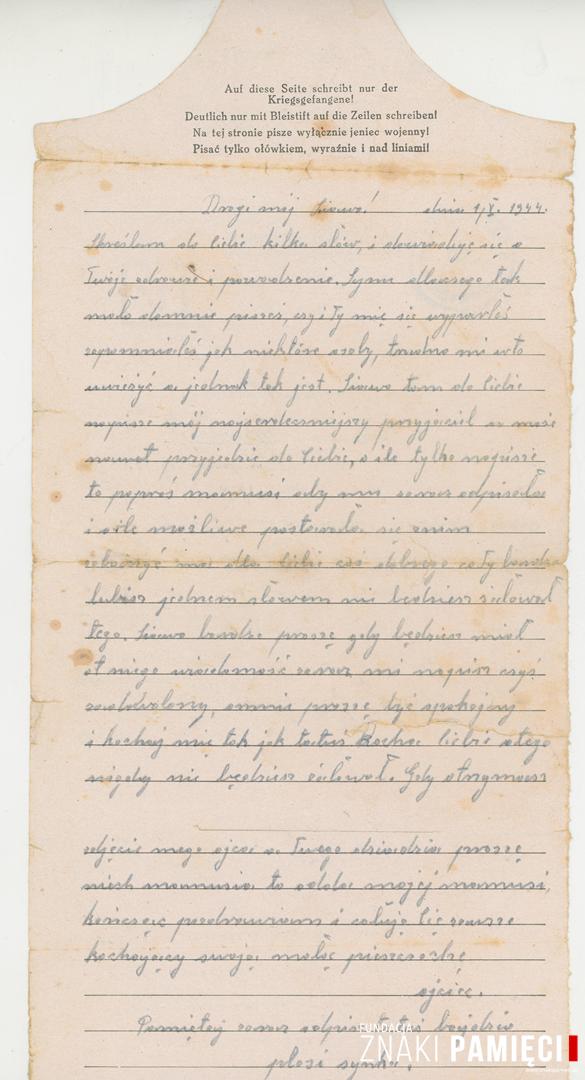 Auf diese Seite schreibt nur der
Kriegsgefangene!
Deutlich nur mit Bleistift auf die Zeilen schreiben!
Na tej stronie pisze wyłącznie jeniec wojenny!
Pisać tylko ołówkiem, wyraźnie i nad liniami!
Drogi mój Sławo! dnia 1/X. 1944.
Skreślam do Ciebie kilka słów, i dowiaduję się o
Twoje zdrowie i powodzenie. Synu dlaczego tak
mało domnie piszesz, czy i Ty mię się wyparłeś
zapomniałeś jak niektóre osoby, trudno mi wto
uwieżyć a jednak tak jest. Sławo tam do Ciebie
napisze mój najserdeczniejszy przyjaciel a może
nawet przyjedzie do Ciebie, o ile tylko napisze
to poproś mamusi aby mu zaraz odpisała
i oile możliwe postarała się znim
zobaczyć ma dla Ciebie coś dobrego co Ty bardzo
lubisz jednem słowem nie będziesz żałował
tego. Sławo bardzo proszę gdy będziesz miał
od niego wiadomość zaraz mi napisz czyś
zadowolony, omnie proszę być spokojny
i kochaj mię tak jak tatuś Kocha Ciebie atego
nigdy nie będziesz żałował. Gdy otrzymasz
zdjęcie mego ojca a Twego dziadzia proszę
niech mamusia to odda mojej mamusi,
kończąc pozdrawiam i całuję Cię zawsze
kochający swoją małą pieszczoszkę
ojciec.
Pamiętaj zaraz odpisz tatuś
prosi synka.
FUNDACJA
ZNAKI PAMIĘCI